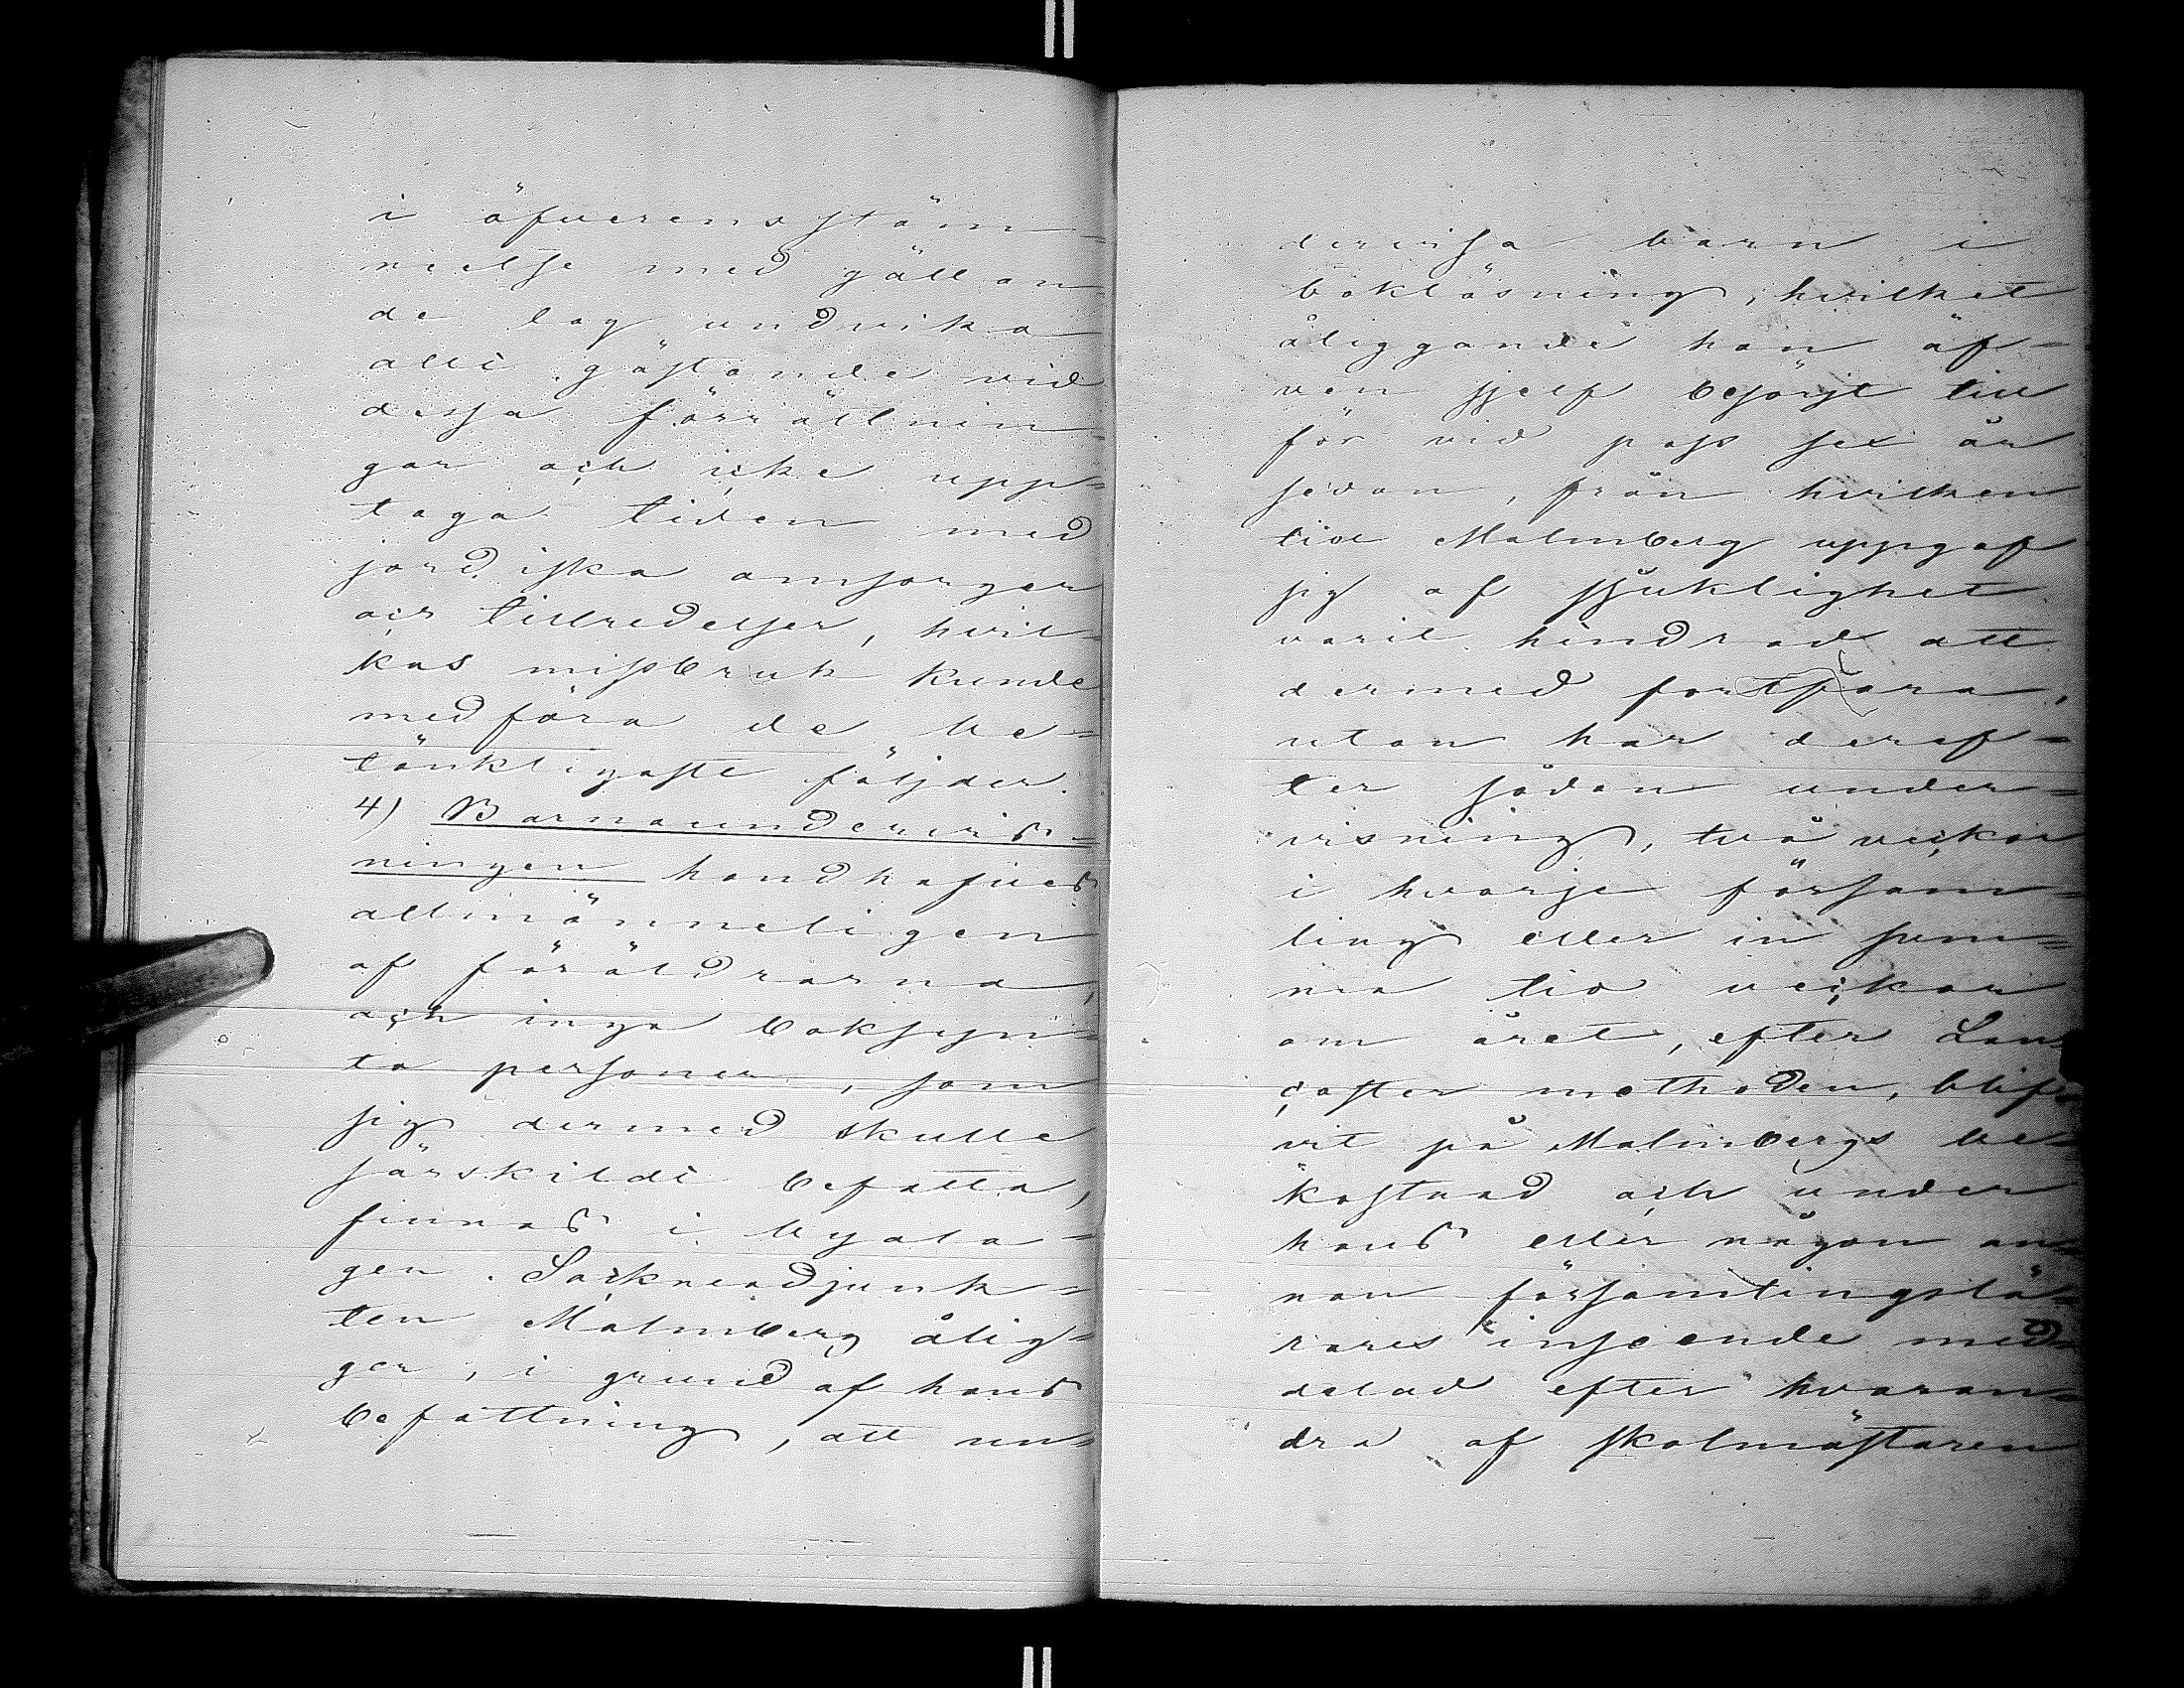 i öfverensstäm=
melse med gällan=
de lag undvika
allt gästande vid
dessa förrättnin=
gar och icke upp=
taga tiden med
jordiska omsorger
och tillredelser, hvil=
kas missbruk kunde
medföra de be=
tänkligaste följder.
4) Barnaundervis=
ningen handhafves
allmänneligen
af föräldrarna,
och inga boksyn=
ta personer, som
sig dermed skulle
särskildt befatta,
finnas i byala=
gen. Sockneadjunk=
ten Malmberg ålig=
ger, i grund af hans
befattning, att un=
dervisa barn i
bokläsning, hvilket
åliggande han äf=
ven sjelf besörjt till
för vid pass sex år
sedan, från hvilken
tid Malmberg uppgaf
sig af sjuklighet
varit hindrad att
dermed fortfara,
utan har deref=
ter sådan under=
visning, två veckor
i hvarje försam=
ling eller in sum=
ma tio veckor
om året, efter Lan=
caster methoden, blif=
vit på Malmbergs be=
kostnad och under
hans eller någon an=
nan församlingslä=
rares inseende med=
delad efter hvaran=
dra af skolmästaren